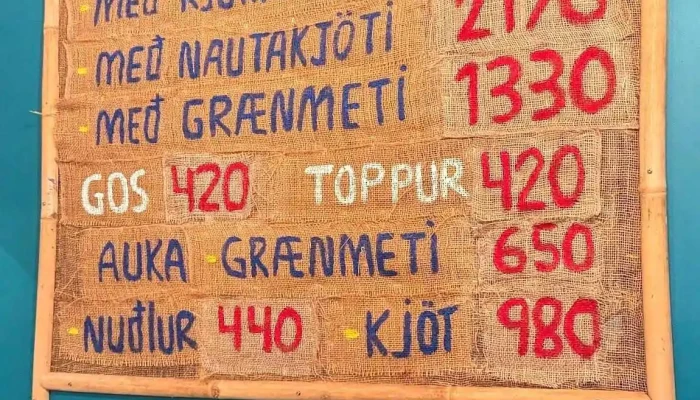 MEÐ
- MEÐ NAUTAKJÖTI
- MEÐ GRÆNMETI 1330
GOS 420 TOPPUR 420
AUKA - GRÆNMETI 650
- NUÐLUR 440 - KJÖT 980